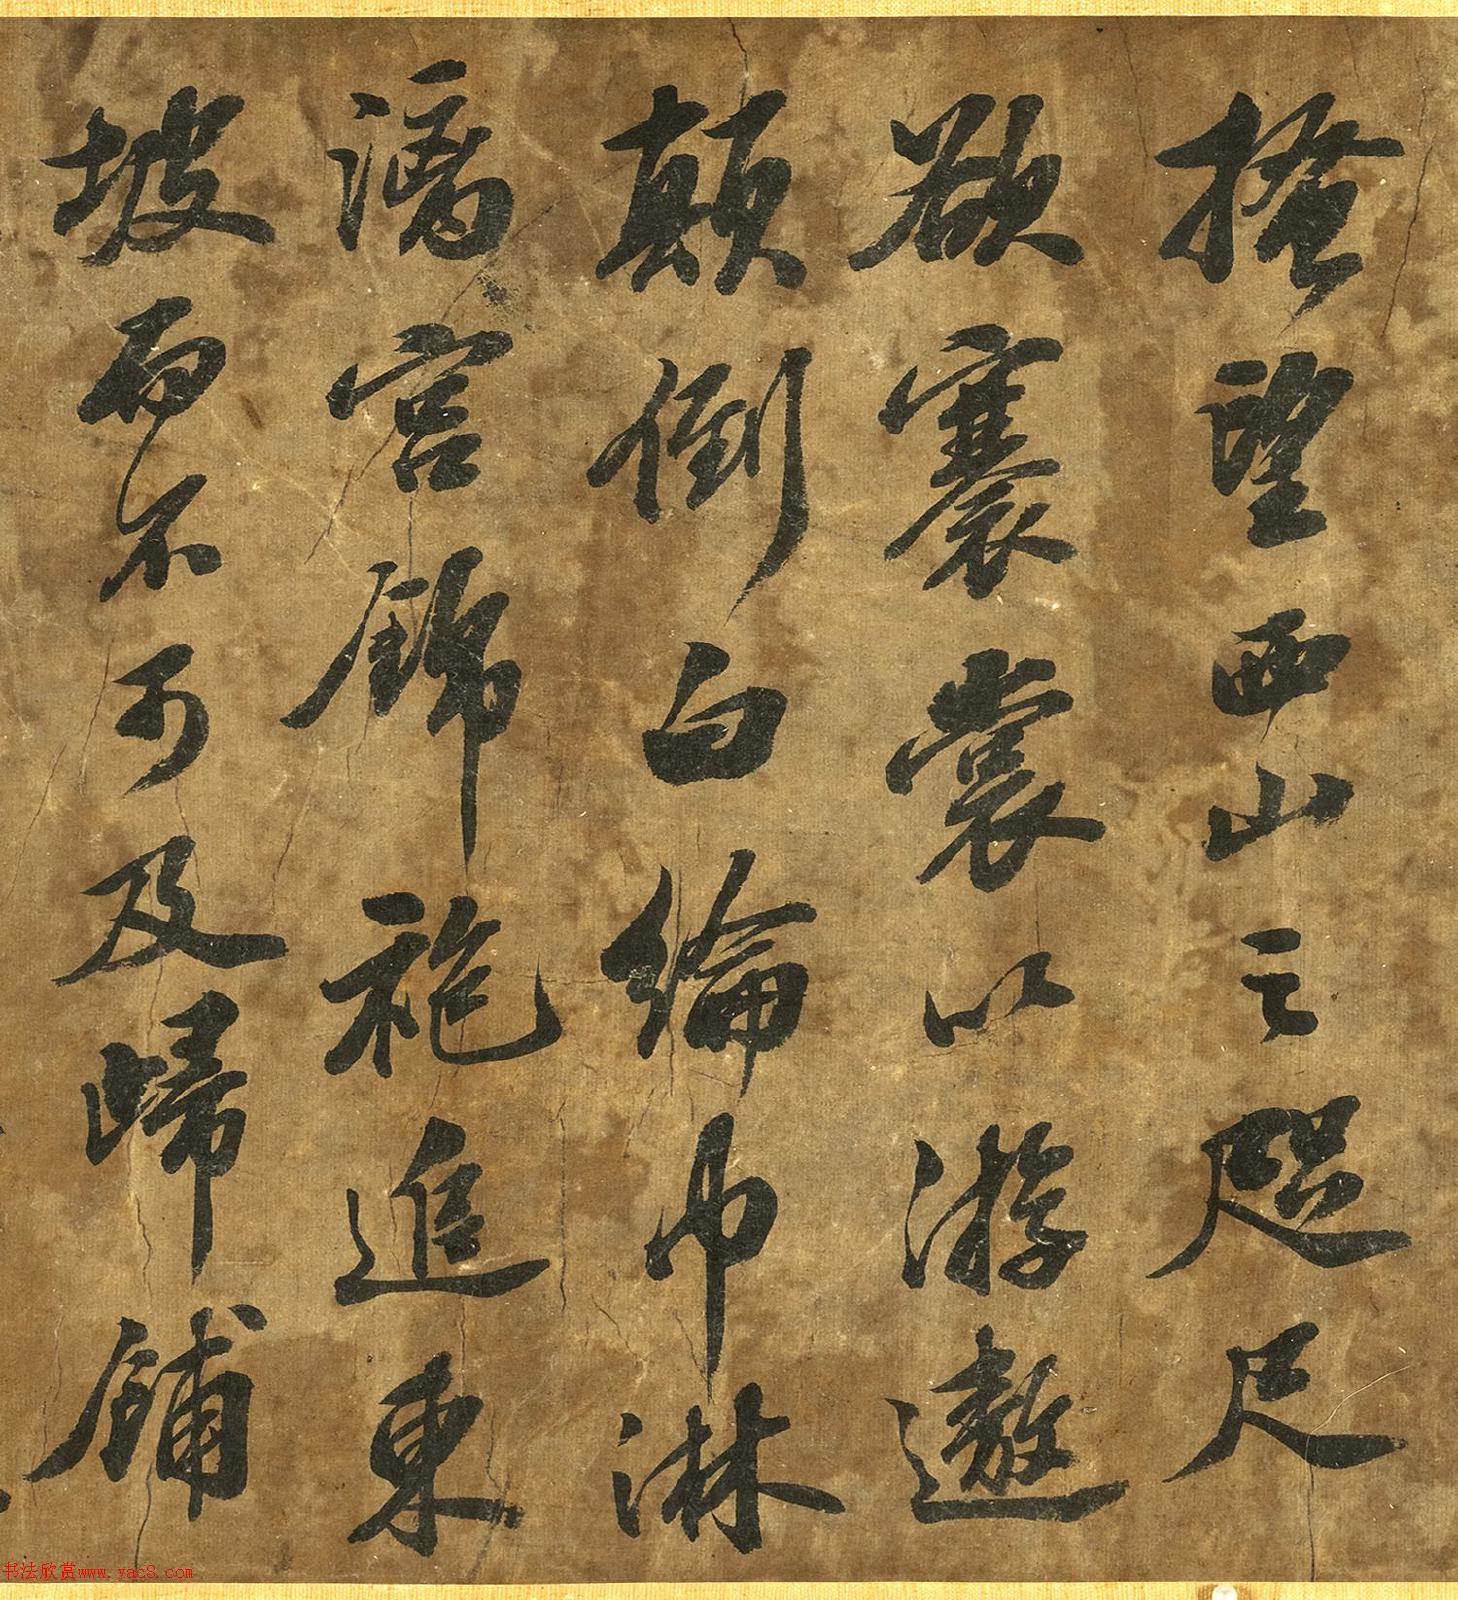 搔望西山之咫尺
欲褰裳以游遨
顛倒白綸巾淋
漓宮錦袍追東
坡而不可及歸鋪
书法欣赏www.yac8.com